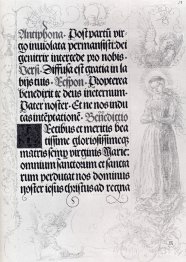 Antiphona · Post partū vir
go inuiolata permansisti: dei
genitrix intercede pro nobis ·
Versi · Diffusa est gratia in la
bijs tuis · Respon · Propterea
benedixit te deus in eternum
Pater noster · Et ne nos indu
cas in tēptationē · Benedictio
Precibus et meritis bea
tissime gloriosissimeqȝ
matris semp virginis Marie:
omnium sanctorum et sancta
rum perducat nos dominus
noster iesus christus ad regna